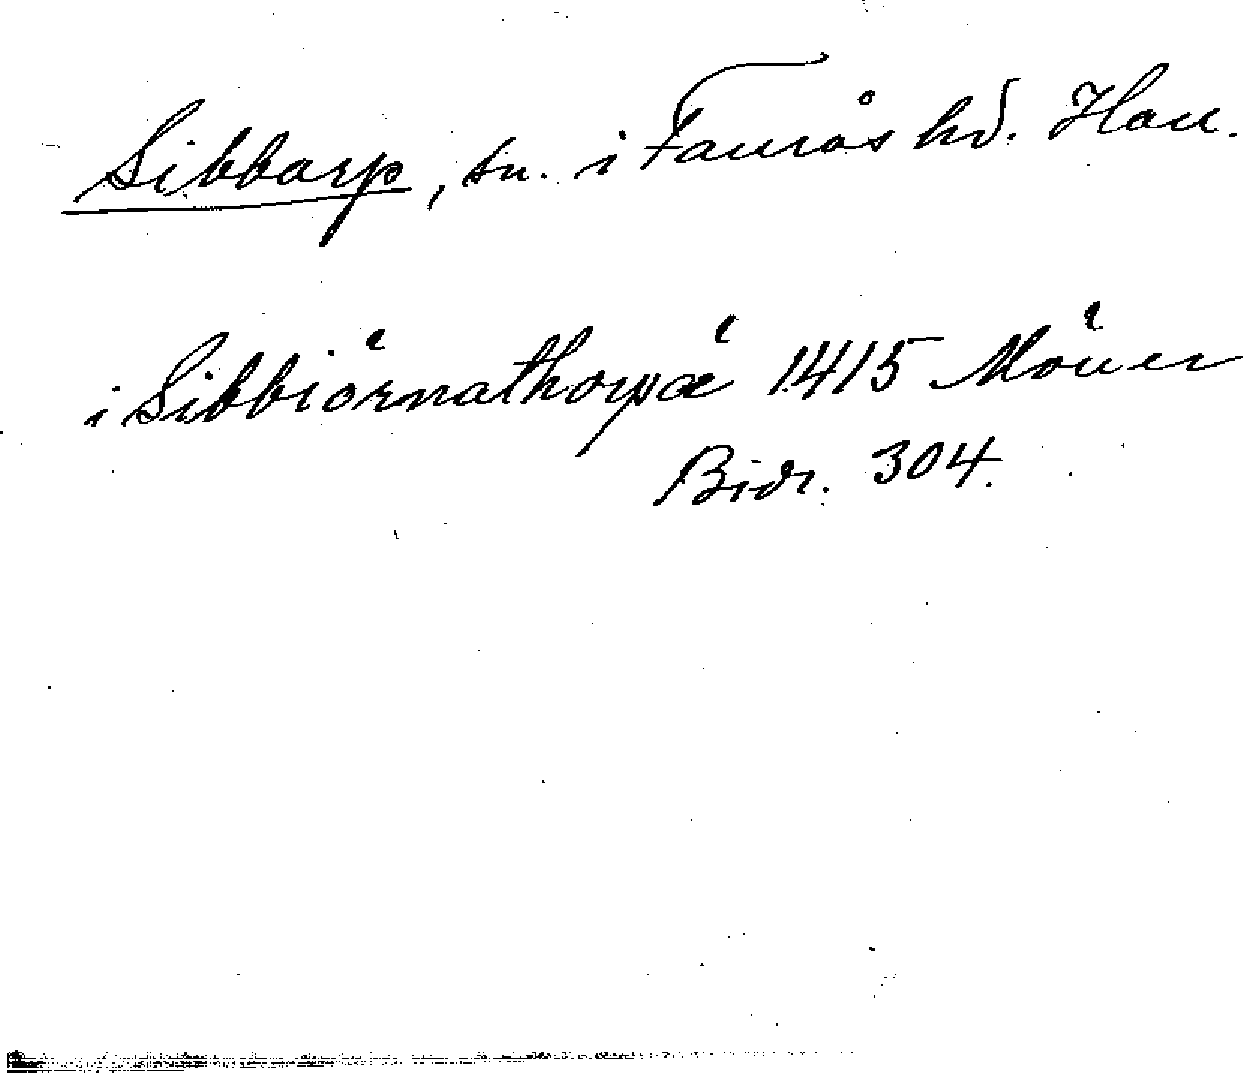 Sibbarp, sn. i Faurås hd. Hall.
i Sibbiörnathorpæ 1415 Möller
Bidr. 304.